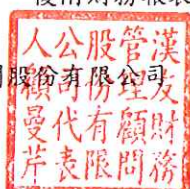 股份有限公司
漢友財務
管理顧問
股份有限
公司代表
人顧曼芹